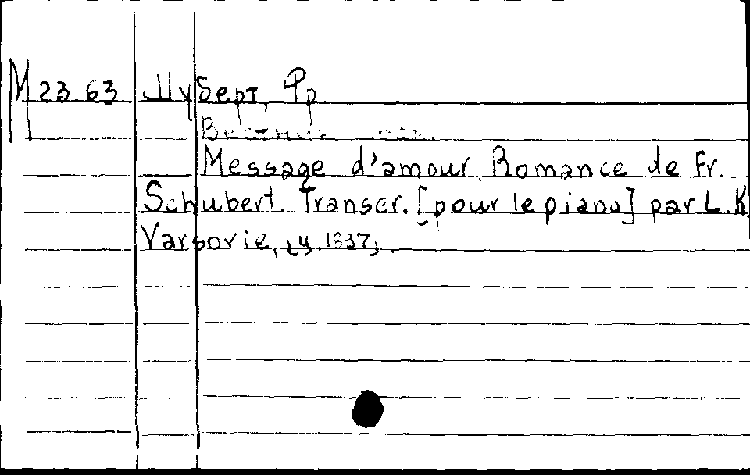 М 23 63 Шуберт, Фр
Message d'amour. Romance de Fr.
Schubert. Transcr. [pour le piano] par L. K
Varsovie,